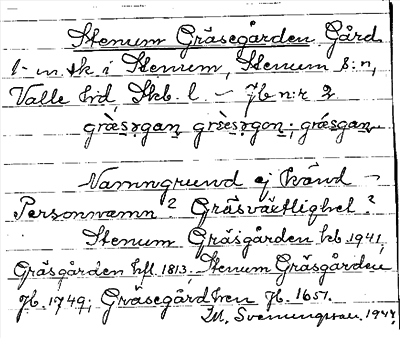 Stenum Gräsegården Gård
1 m sk i Stenum, Stenum s:n,
Valle hd, Skb. l. – Jb n:r 2
græ̀sǝgan grèsǝgon; græ̀sgan
Namngrund ej känd –
Personnamn? Gräsväxtlighet?
Stenum Gräsgården kb. 1941,
Gräsgården hfl. 1813; Stenum Gräsgården
Jb. 1749; Gräsegård Jb. 1651.
M. Svenungsson. 1944.